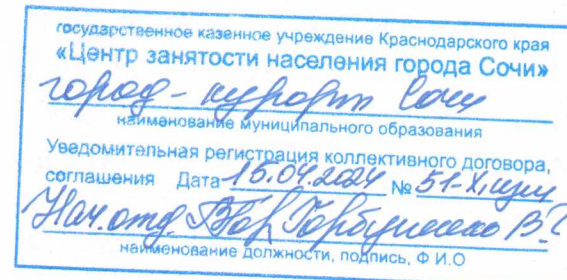 государственное казенное учреждение Краснодарского края
«Центр занятости населения города Сочи»
город - курорт Сочи
наименование муниципального образования
Уведомительная регистрация коллективного договора,
соглашения Дата 15.04.2024 № 51-X, изм
Нач. отд. Горбуненко В.
наименование должности, подпись, Ф И.О